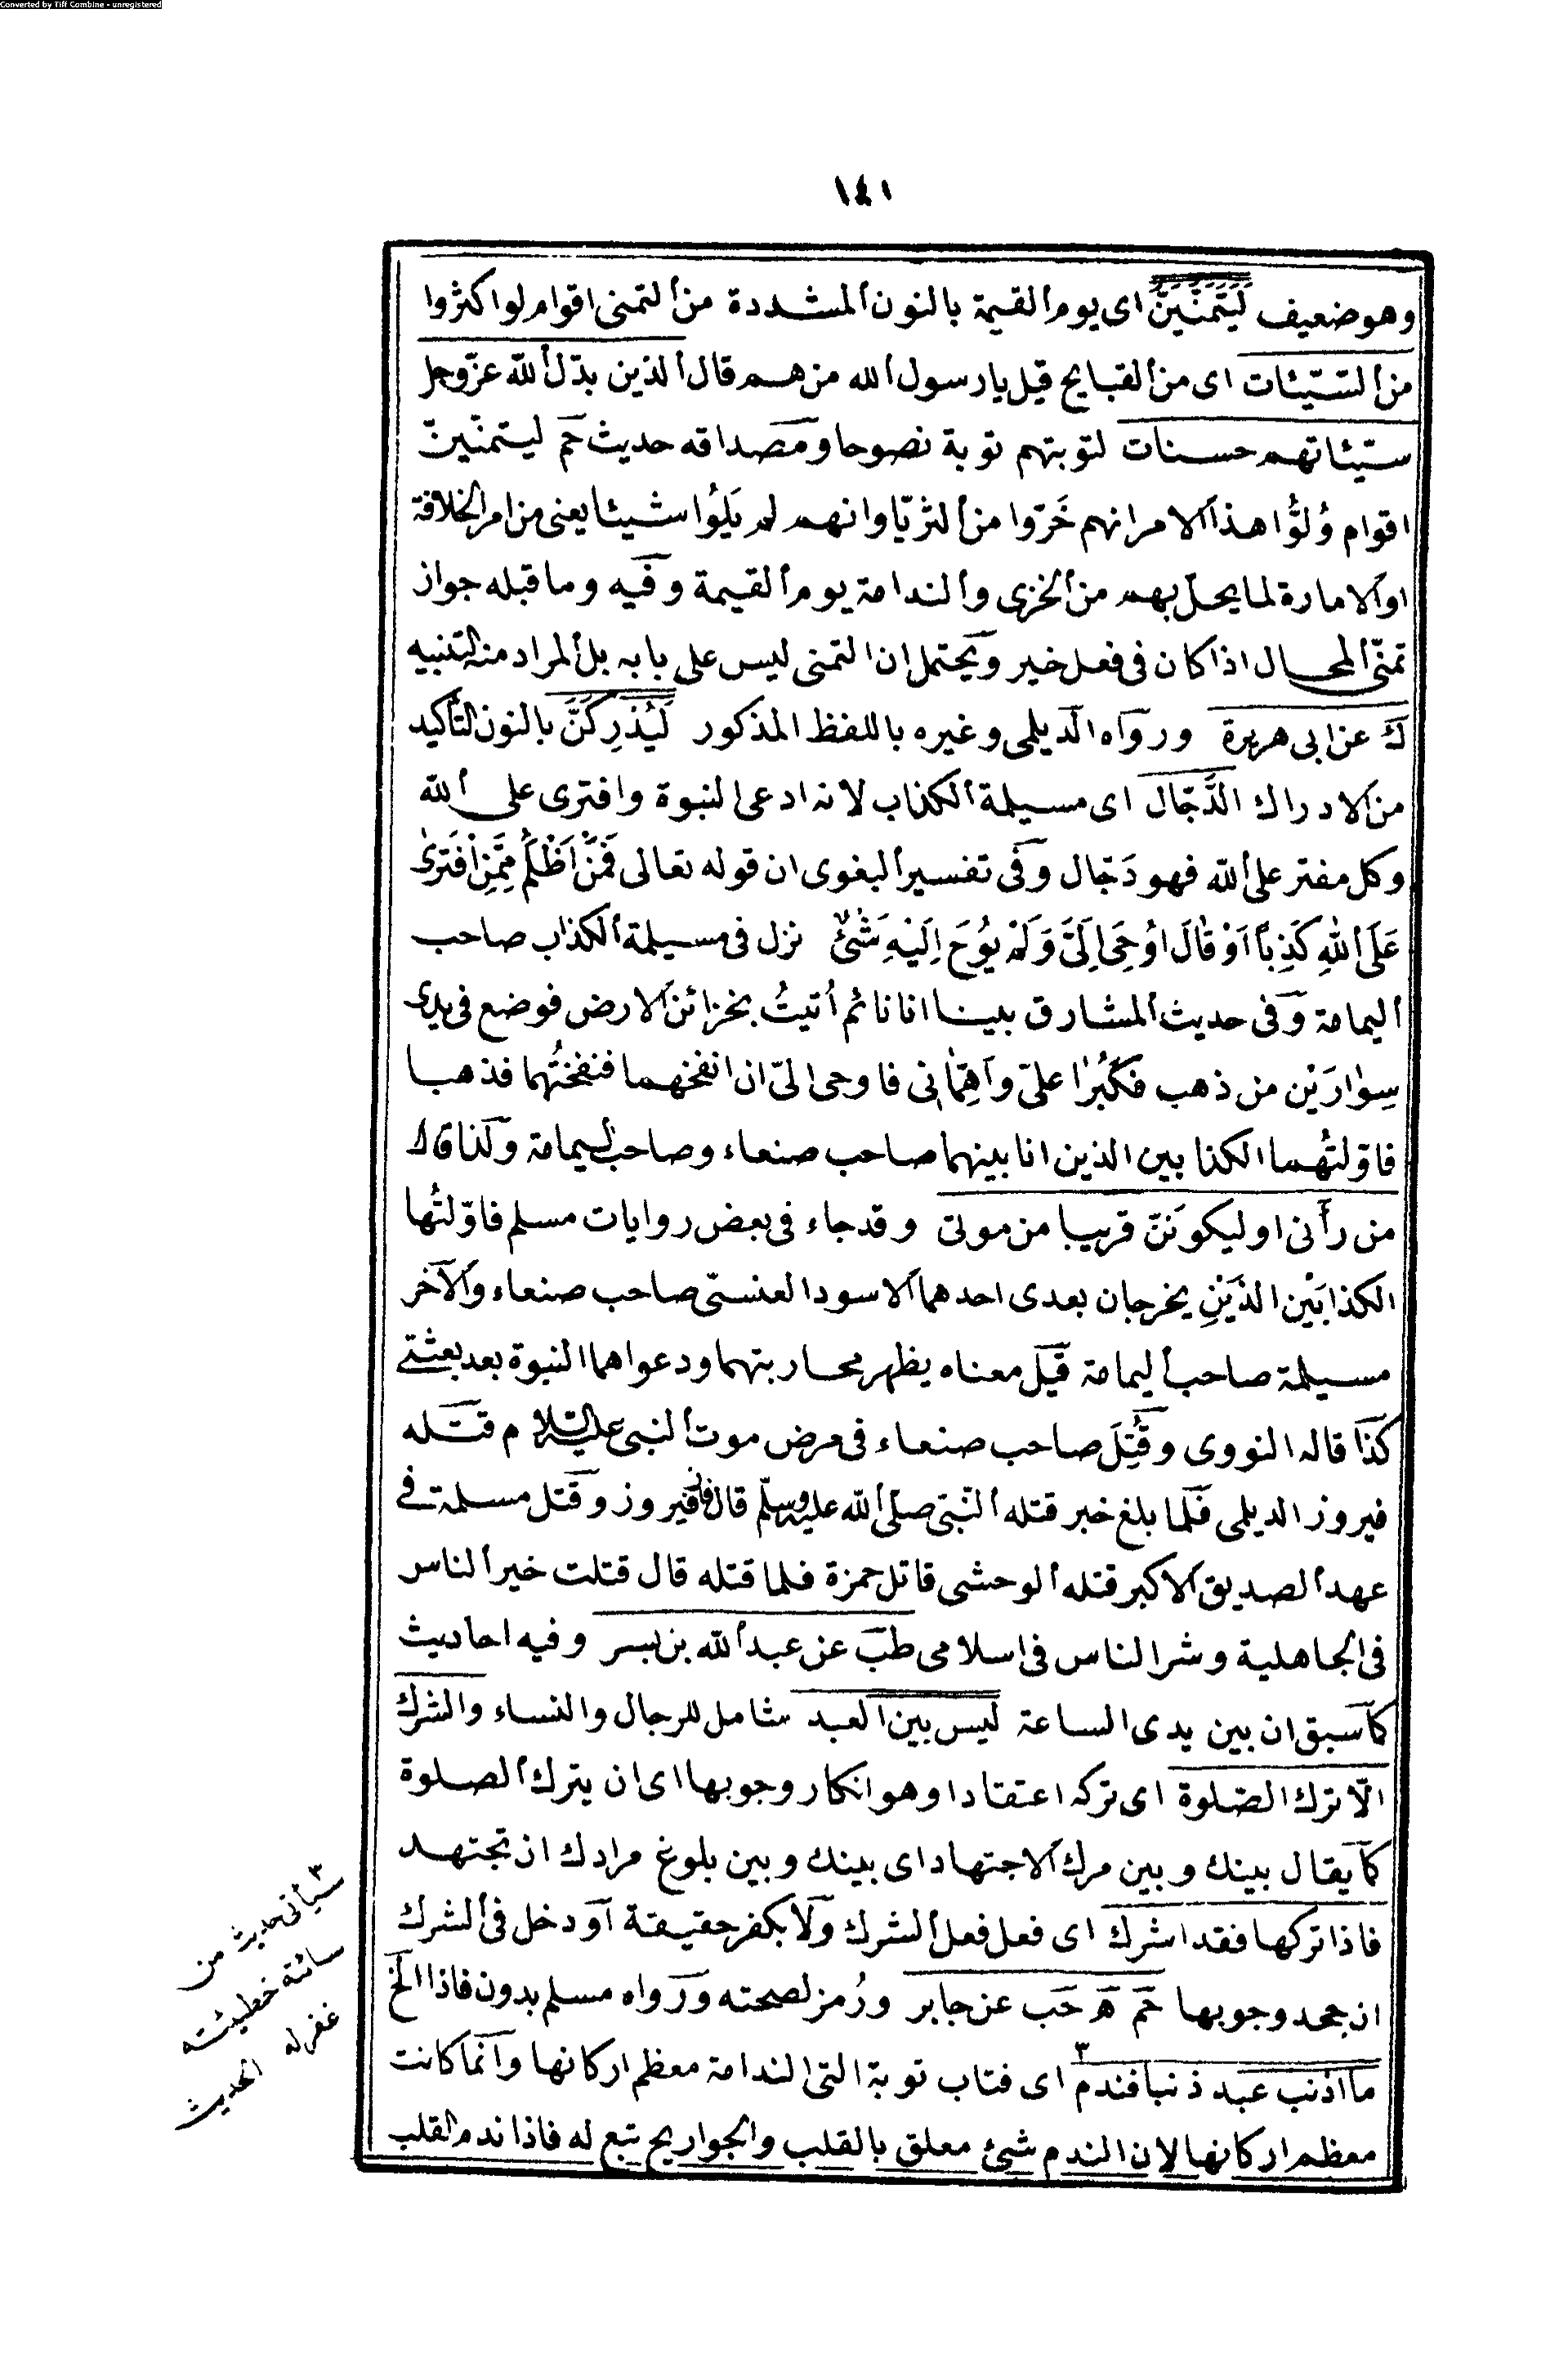 Converted by Tiff Combine - unregistered
١٤١
وهو ضعيف لَيَتَمَنَّيَنَّ اى يوم القيمة بالنون المشددة من التمنى اقوام لو اكثروا
من السيّئات اى من القبايح قيل يا رسول الله من هم قال الذين بدّل الله عزّ وجل
سيّئاتهم حسنات لتوبتهم توبة نصوحا ومصداقه حديث حم ليتمنّينّ
اقوام وُلُّوا هذا الامر انهم خَرّوا من الثريّا وانهم لم يَلُوا شيئا يعنى من امر الخلافة
او الامارة لما يحل بهم من الخزى والندامة يوم القيمة وفيه وما قبله جواز
تمنّى المحال اذا كان فى فعل خير ويحتمل ان التمنى ليس على بابه بل المراد منه التنبيه
ك عن ابى هريرة ورواه الديلمى وغيره باللفظ المذكور لَيُدْرِكَنَّ بالنون التأكيد
من الادراك الدَّجّال اى مسيلمة الكذاب لانه ادعى النبوة وافترى على الله
وكل مفتر على الله فهو دَجّال وفى تفسير البغوى ان قوله تعالى فَمَنْ اَظْلَمُ مِمَّنِ افْتَرٰى
عَلَى اللهِ كَذِبًا اَوْ قَالَ اُوحِىَ اِلَىَّ وَلَمْ يُوحَ اِلَيْهِ شَئٌ نزل فى مسيلمة الكذاب صاحب
اليمامة وفى حديث المشارق بينا انا نائم اُتيتُ بخزائن الارض فوضع فى يدى
سِوٰارَيْن من ذهب فكَبُرٰا علىّ واهمّانى فاوحى الىّ ان انفخهما فنفختُهما فذهبا
فاوّلتُهما الكذابين الذين انا بينهما صاحب صنعاء وصاحب اليمامة وكذا قال
من رأنى او ليكونَنّ قريبا من موتى وقد جاء فى بعض روايات مسلم فاوّلتُها
الكذابَيْن الذَيْنِ يخرجان بعدى احدهما الاسود العنسىّ صاحب صنعاء والآخر
مسيلمة صاحب اليمامة قيل معناه يظهر محاربتهما ودعواهما النبوة بعد بعثتى
كذا قاله النووى وقُتِلَ صاحب صنعاء فى مرض موت النبى عليه السلام قتله
فيروز الديلمى فلما بلغ خبر قتله النّبىّ صلى الله عليه وسلّم قال فاز فيروز وقتل مسلمة فى
عهد الصديق الاكبر قتله الوحشى قاتل حمزة فلما قتله قال قتلت خير الناس
فى الجاهلية وشر الناس فى اسلامى طب عن عبد الله بن بسر وفيه احاديث
كما سبق ان بين يدى الساعة ليس بين العبد شامل للرجال والنساء والشرك
الّا ترك الصّلوة اى تركه اعتقادا وهو انكار وجوبها اى ان يترك الصلوة
كما يقال بينك وبين مرك الاجتهاد اى بينك وبين بلوغ مرادك ان تجتهد
فاذا تركها فقد اشرك اى فعل فعل الشرك ولا بكفر حقيقة او دخل فى الشرك
ان جحد وجوبها حم ه حب عن جابر ورُمز لصحته ورواه مسلم بدون فاذا الخ
ما اذنب عبد ذنبا فندم ٣ اى فتاب توبة التى الندامة معظم اركانها وانما كانت
معظم اركانها لان الندم شئ معلق بالقلب والجواريح تبع له فاذا ندم القلب
٣ سيأتى حديث من
سائته خطيئته
غفر له الحديث